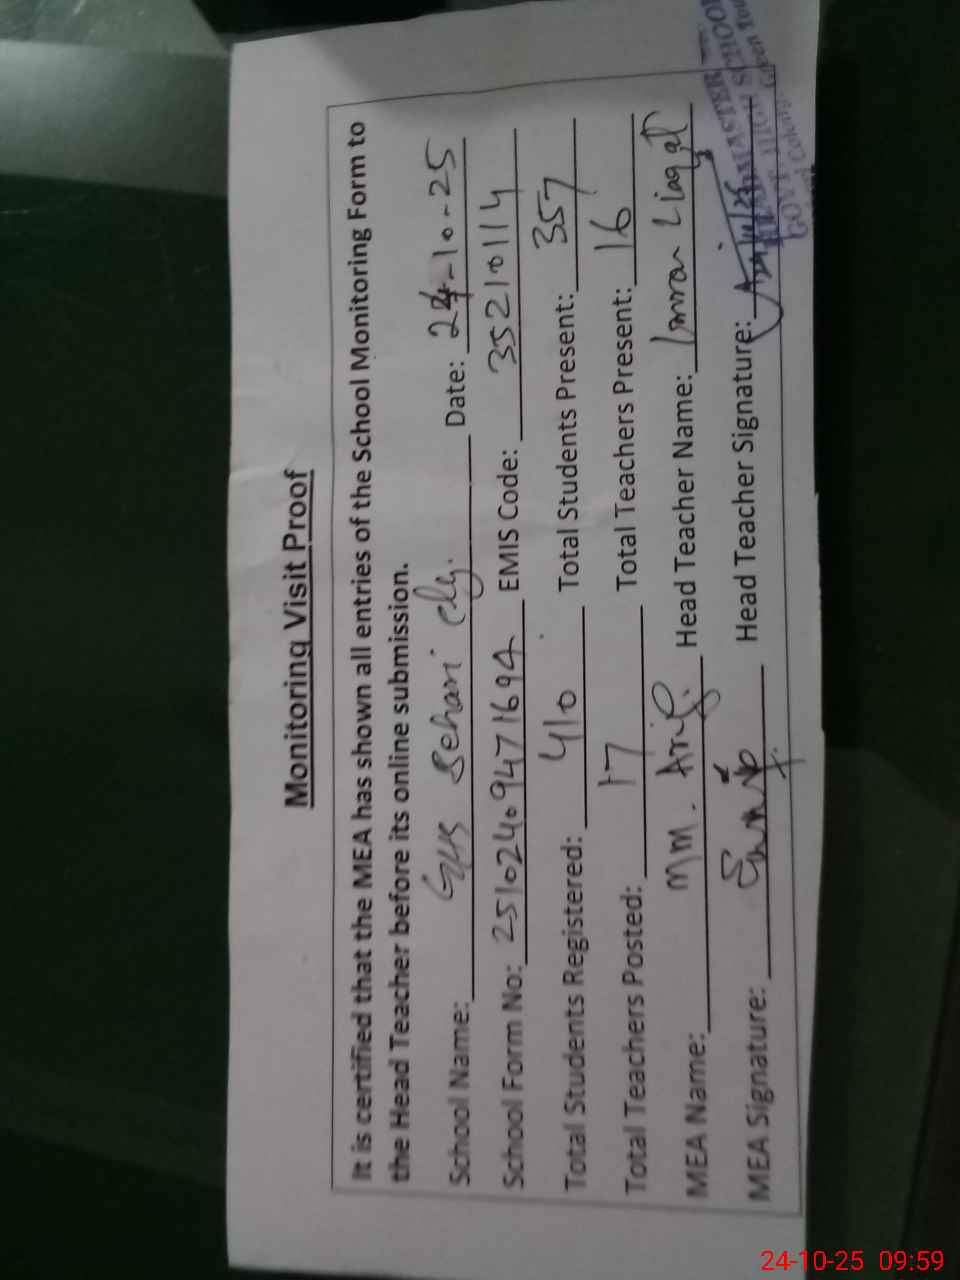 Monitoring Visit Proof
It is certified that the MEA has shown all entries of the School Monitoring Form to
the Head Teacher before its online submission.
School Name: GHS Sehari Date: 24-10-25
School Form No: 25102409471694 EMIS Code: 35210114
Total Students Registered: 410 Total Students Present: 357
Total Teachers Posted: 17 Total Teachers Present: 16
MEA Name: MM. Arif. Head Teacher Name: Imran Liaqat
MEA Signature: Head Teacher Signature:
HEADMASTER
GOVT. HIGH SCHOOL
24-10-25 09:59